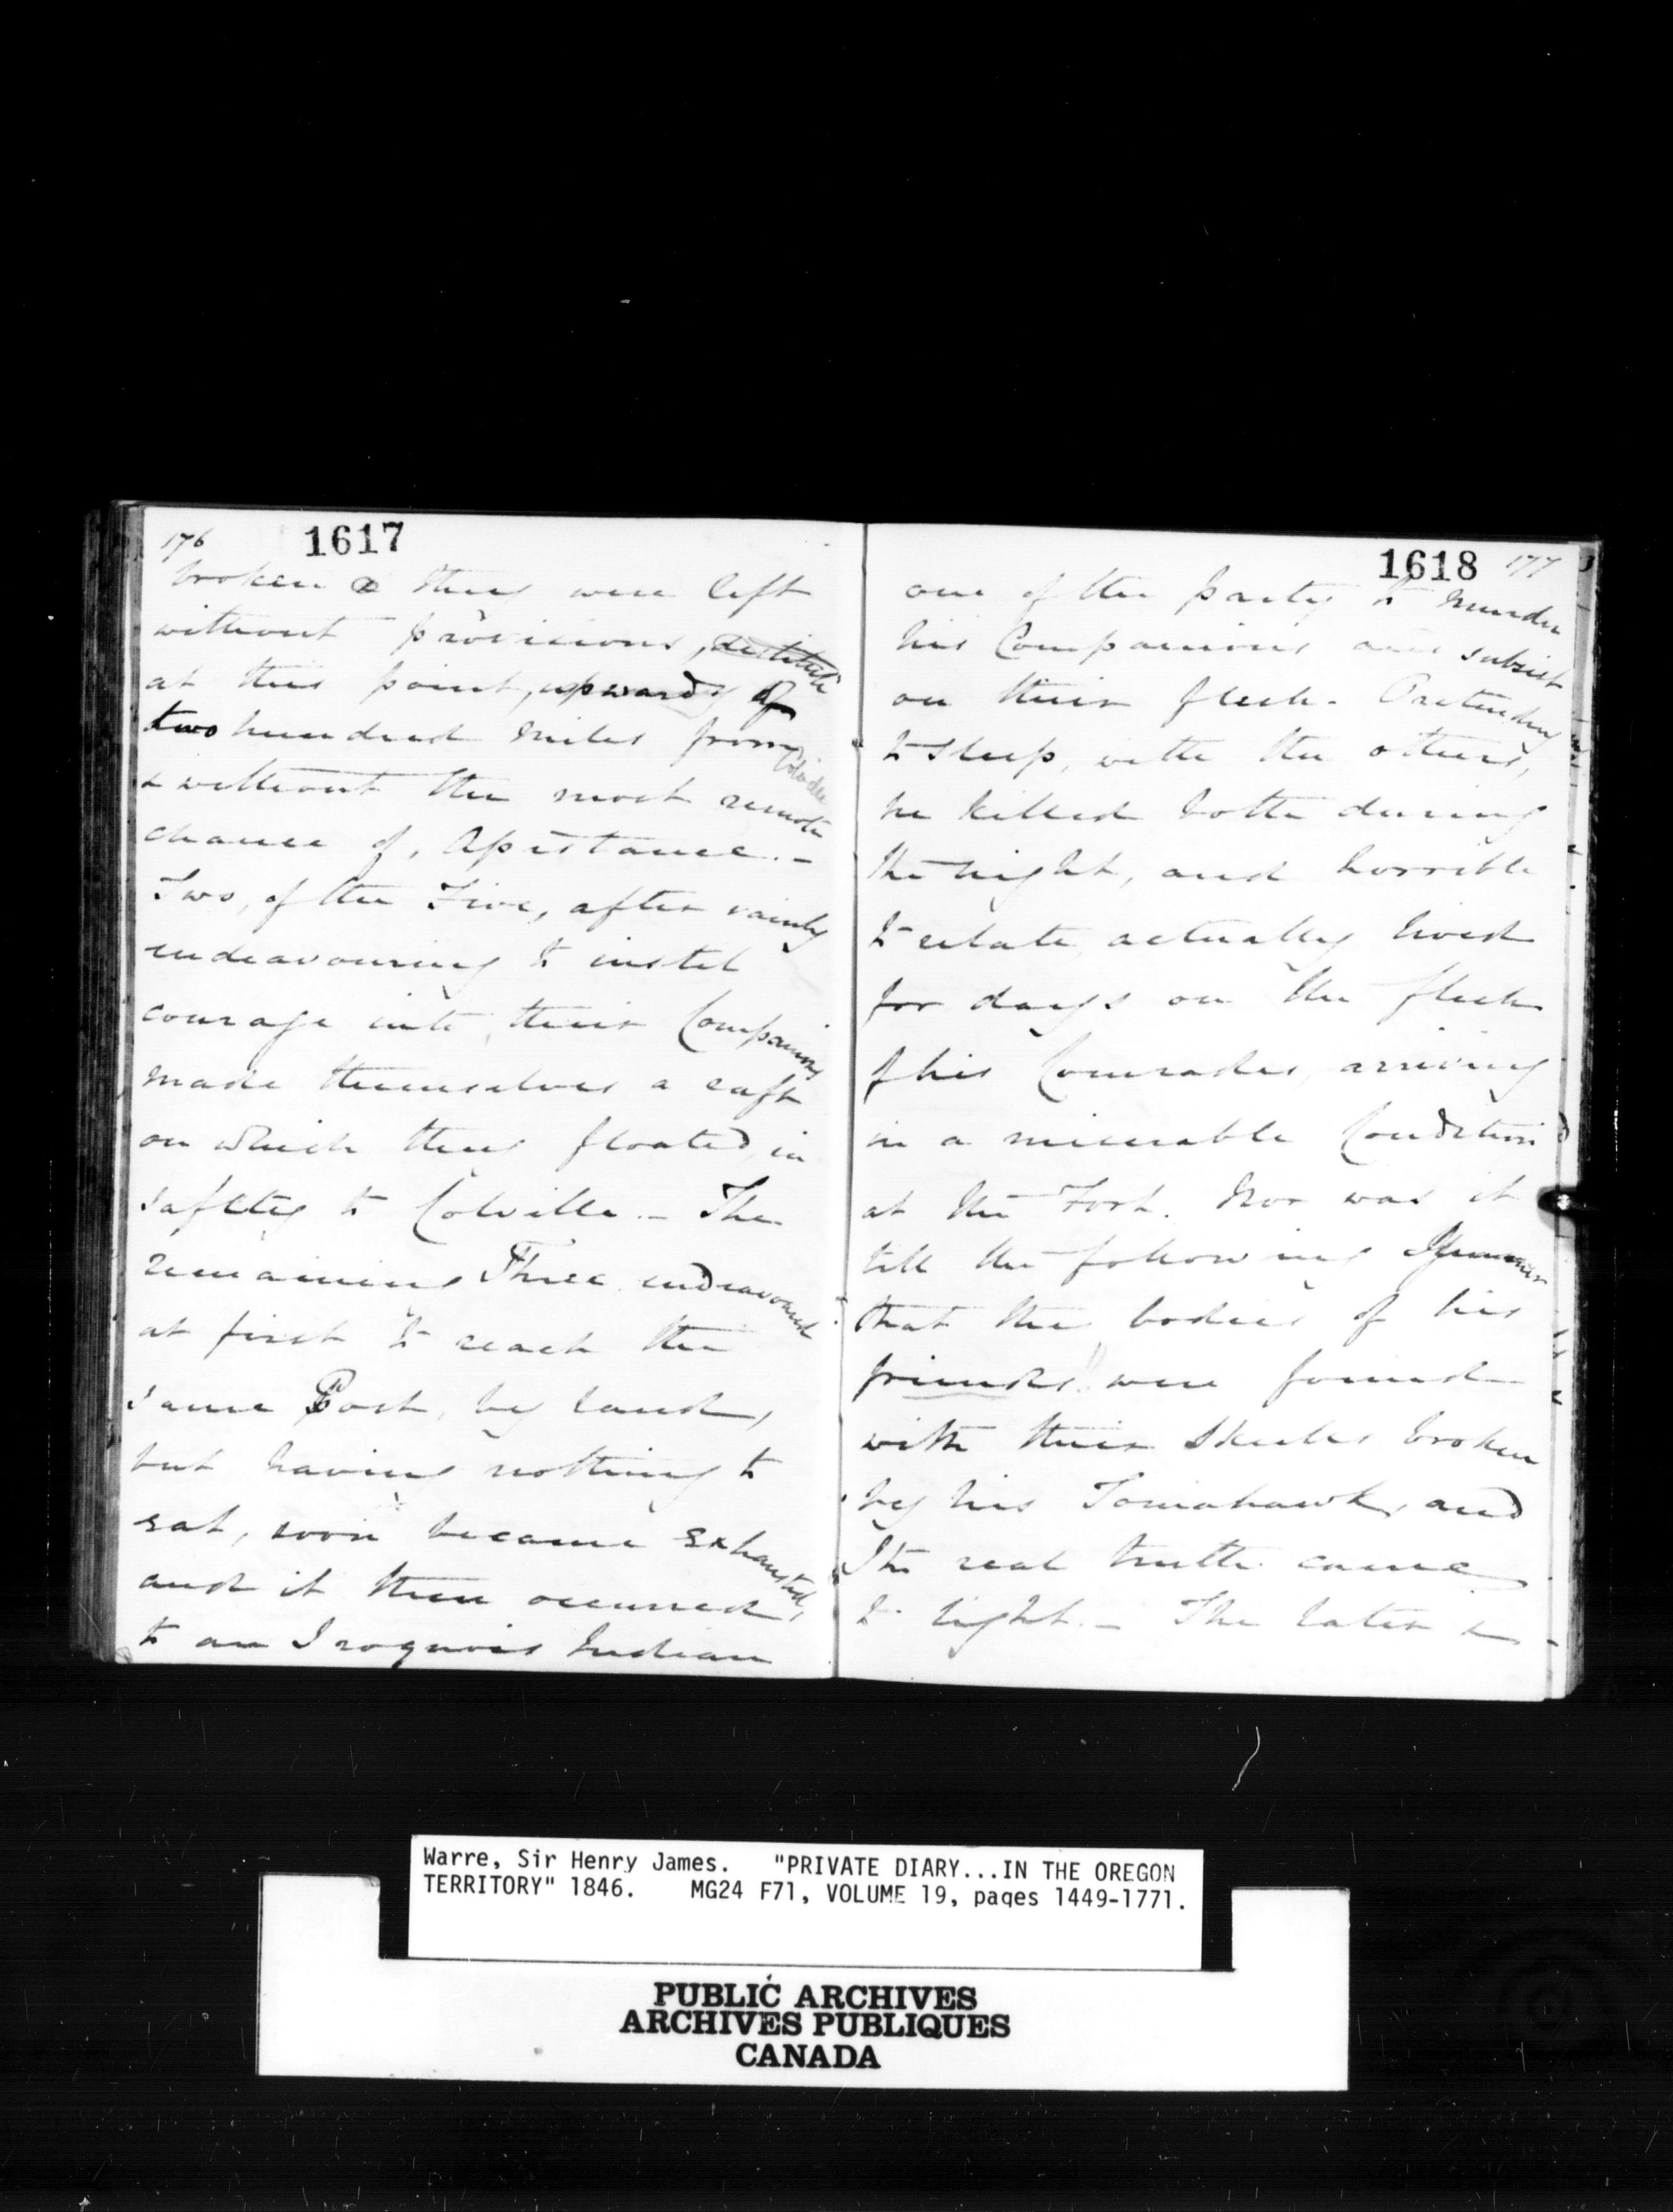 176 1617
broken & they were left
without provisions, destitute
at this point, upwards of
two hundred miles from Colville
& without the most remote
chance of, Assistance. -
Two, of the Five, after vainly
endeavouring to instil
courage into, their Companions
made themselves a raft
on which they floated, in
safety to Colville - The
remaining Three endeavoured
at first to reach the
same Post, by land,
but having nothing to
eat, soon became exhausted,
and it then occurred,
to an Iroquois Indian
1618 177
one of the party to murder
his Companions and subsist
on their flesh. Pretending
to sleep, with the others,
he killed both during
the night, and horrible
to relate, actually lived
for days on the flesh
of his Comrades, arriving
in a miserable Condition
at the Fort. Nor was it
till the following Summer
that the bodies of his
friends!! were found
with their Skulls broken
by his Tomahawk, and
the real truth came
to light. - The latter
Warre, Sir Henry James. "PRIVATE DIARY...IN THE OREGON
TERRITORY" 1846. MG24 F71, VOLUME 19, pages 1449-1771.
PUBLIC ARCHIVES
ARCHIVES PUBLIQUES
CANADA